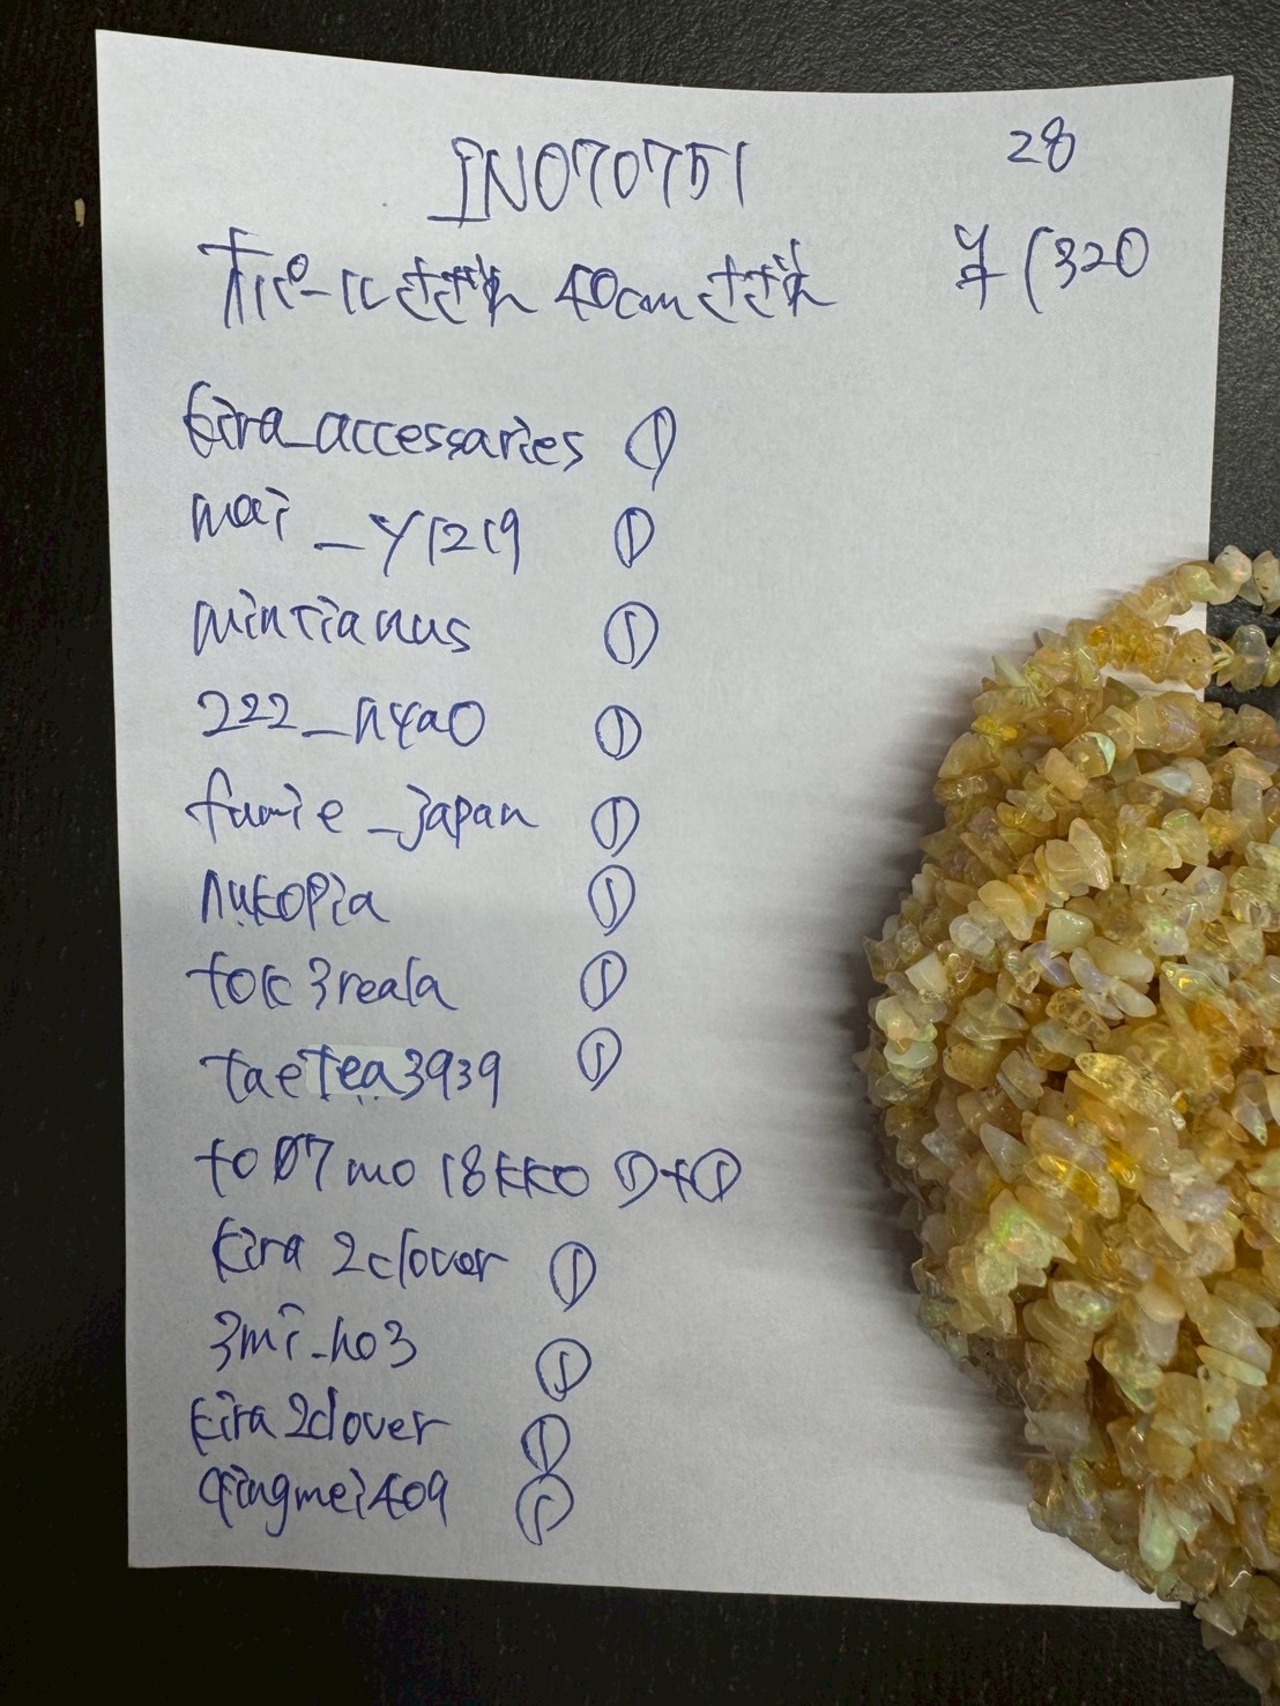 INO70751 28
オパールさざれ 40cmさざれ ¥1320
kira_accessaries ①
mai_y1219 ①
mintianus ①
222_nyao ①
fumie_japan ①
nukopia ①
tok3reala ①
taetea3939 ①
to07mo18kko ①+①
kira2clover ①
3mi_ho3 ①
kira2clover ①
qingmei409 ①